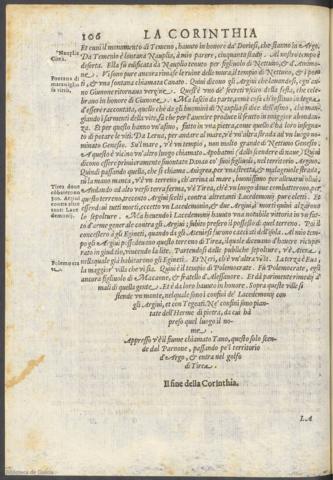 106 LA CORINTHIA
Et euui il monumento di Temeno, hauuto in honore da' Doriesi, che stanno in Argo.
Nauplia
Città.
Da Temenio è lontana Nauplia, à mio parere, cinquanta stadij. Al nostro tempo è
deserta. Ella fù edificata da Nauplio tenuto per figliuolo di Nettuno, & d'Amimo-
ne. Visono pure ancora rimase le ruine delle mura, il tempio di Nettuno, & i por-
Fontana di
ti, & vna fontana chiamata Canato. Quiui dicono gli Argiui che lauandosi, ogni an-
no Giunone ritornaua vergine. Questi è vno de' secreti vfficio della festa, che cele-
brano in honore di Giunone.
d'esser raccontate, quello che da gli huomini di Nauplia si dice dell'asino, che man-
giando i sarmenti della vite, fà che per l'auenire produce il frutto in maggior abondan-
za. Et per questo hanno vn'asino, fatto in vna pietra, come quello ch'à loro insegna-
to di potare le viti. Da Lerna, per andare al mare, v'è vn'altra strada ad vn luogo no-
minato Genesio. Sul mare, v'è vn tempio, non molto grande di Nettuno Genesio.
dicono essere primieramente smontato Danao co' suoi figliuoli, nel territorio d'Argo.
Quindi passando quella, che si chiama Anigrea, per vna stretta, & malageuole strada,
Tirea doue
Andando ad alto verso terra ferma, v'è Tirea, ch'è vn luogo doue combatterono per
questo terreno, trecento Argiui scelti, contra altretanti Lacedemonij pure eletti. Et
essendoui tutti morti, eccetto vn Lacedemonio, & due Argiui, à' morti quiui alzarono
le sepolture. Ma hauendo i Lacedemonij hauuto vna notabile vittoria in vn fat-
to d'arme generale contra gli Argiui, subito presero il possesso di quel terreno. Poi il
concessero à gli Egineti, quando da gli Ateniesi furono cacciati dell'isola. Al mio tem-
po gli Argiui possedeuano questo terreno di Tirea, il quale dicono d'hauere ricupe-
rato in giuditio, vincendo la lite. Partendosi dalle publiche sepolture, v'è Atena,
nella quale già habitarono gli Egineti. Et Neri, ch'è vn'altra villa. La terza è Eua,
la maggior villa che vi sia. Quiui è il tempio di Polemocrate. Fù Polemocrate, egli
ancora figliuolo di Macaone, & fratello d'Alessanore. Et dà parimente rimedij a'
mali di quella gente, Et è da loro hauuto in honore. Sopra queste ville si
stende vn monte, nel quale sono i confini de' Lacedemonij con
gli Argiui, et con Tegeati. Ne' confini sono pian-
tate dell'Herme di pietra, da cui hà
preso quel luogo il no-
me.
Appresso v'è il fiume chiamato Tano, questo solo scen-
de dal Parnone, passando pe'l territorio
d'Argo, & entra nel golfo
di Tirea.
Il fine della Corinthia.
LA
Biblioteca de Galicia